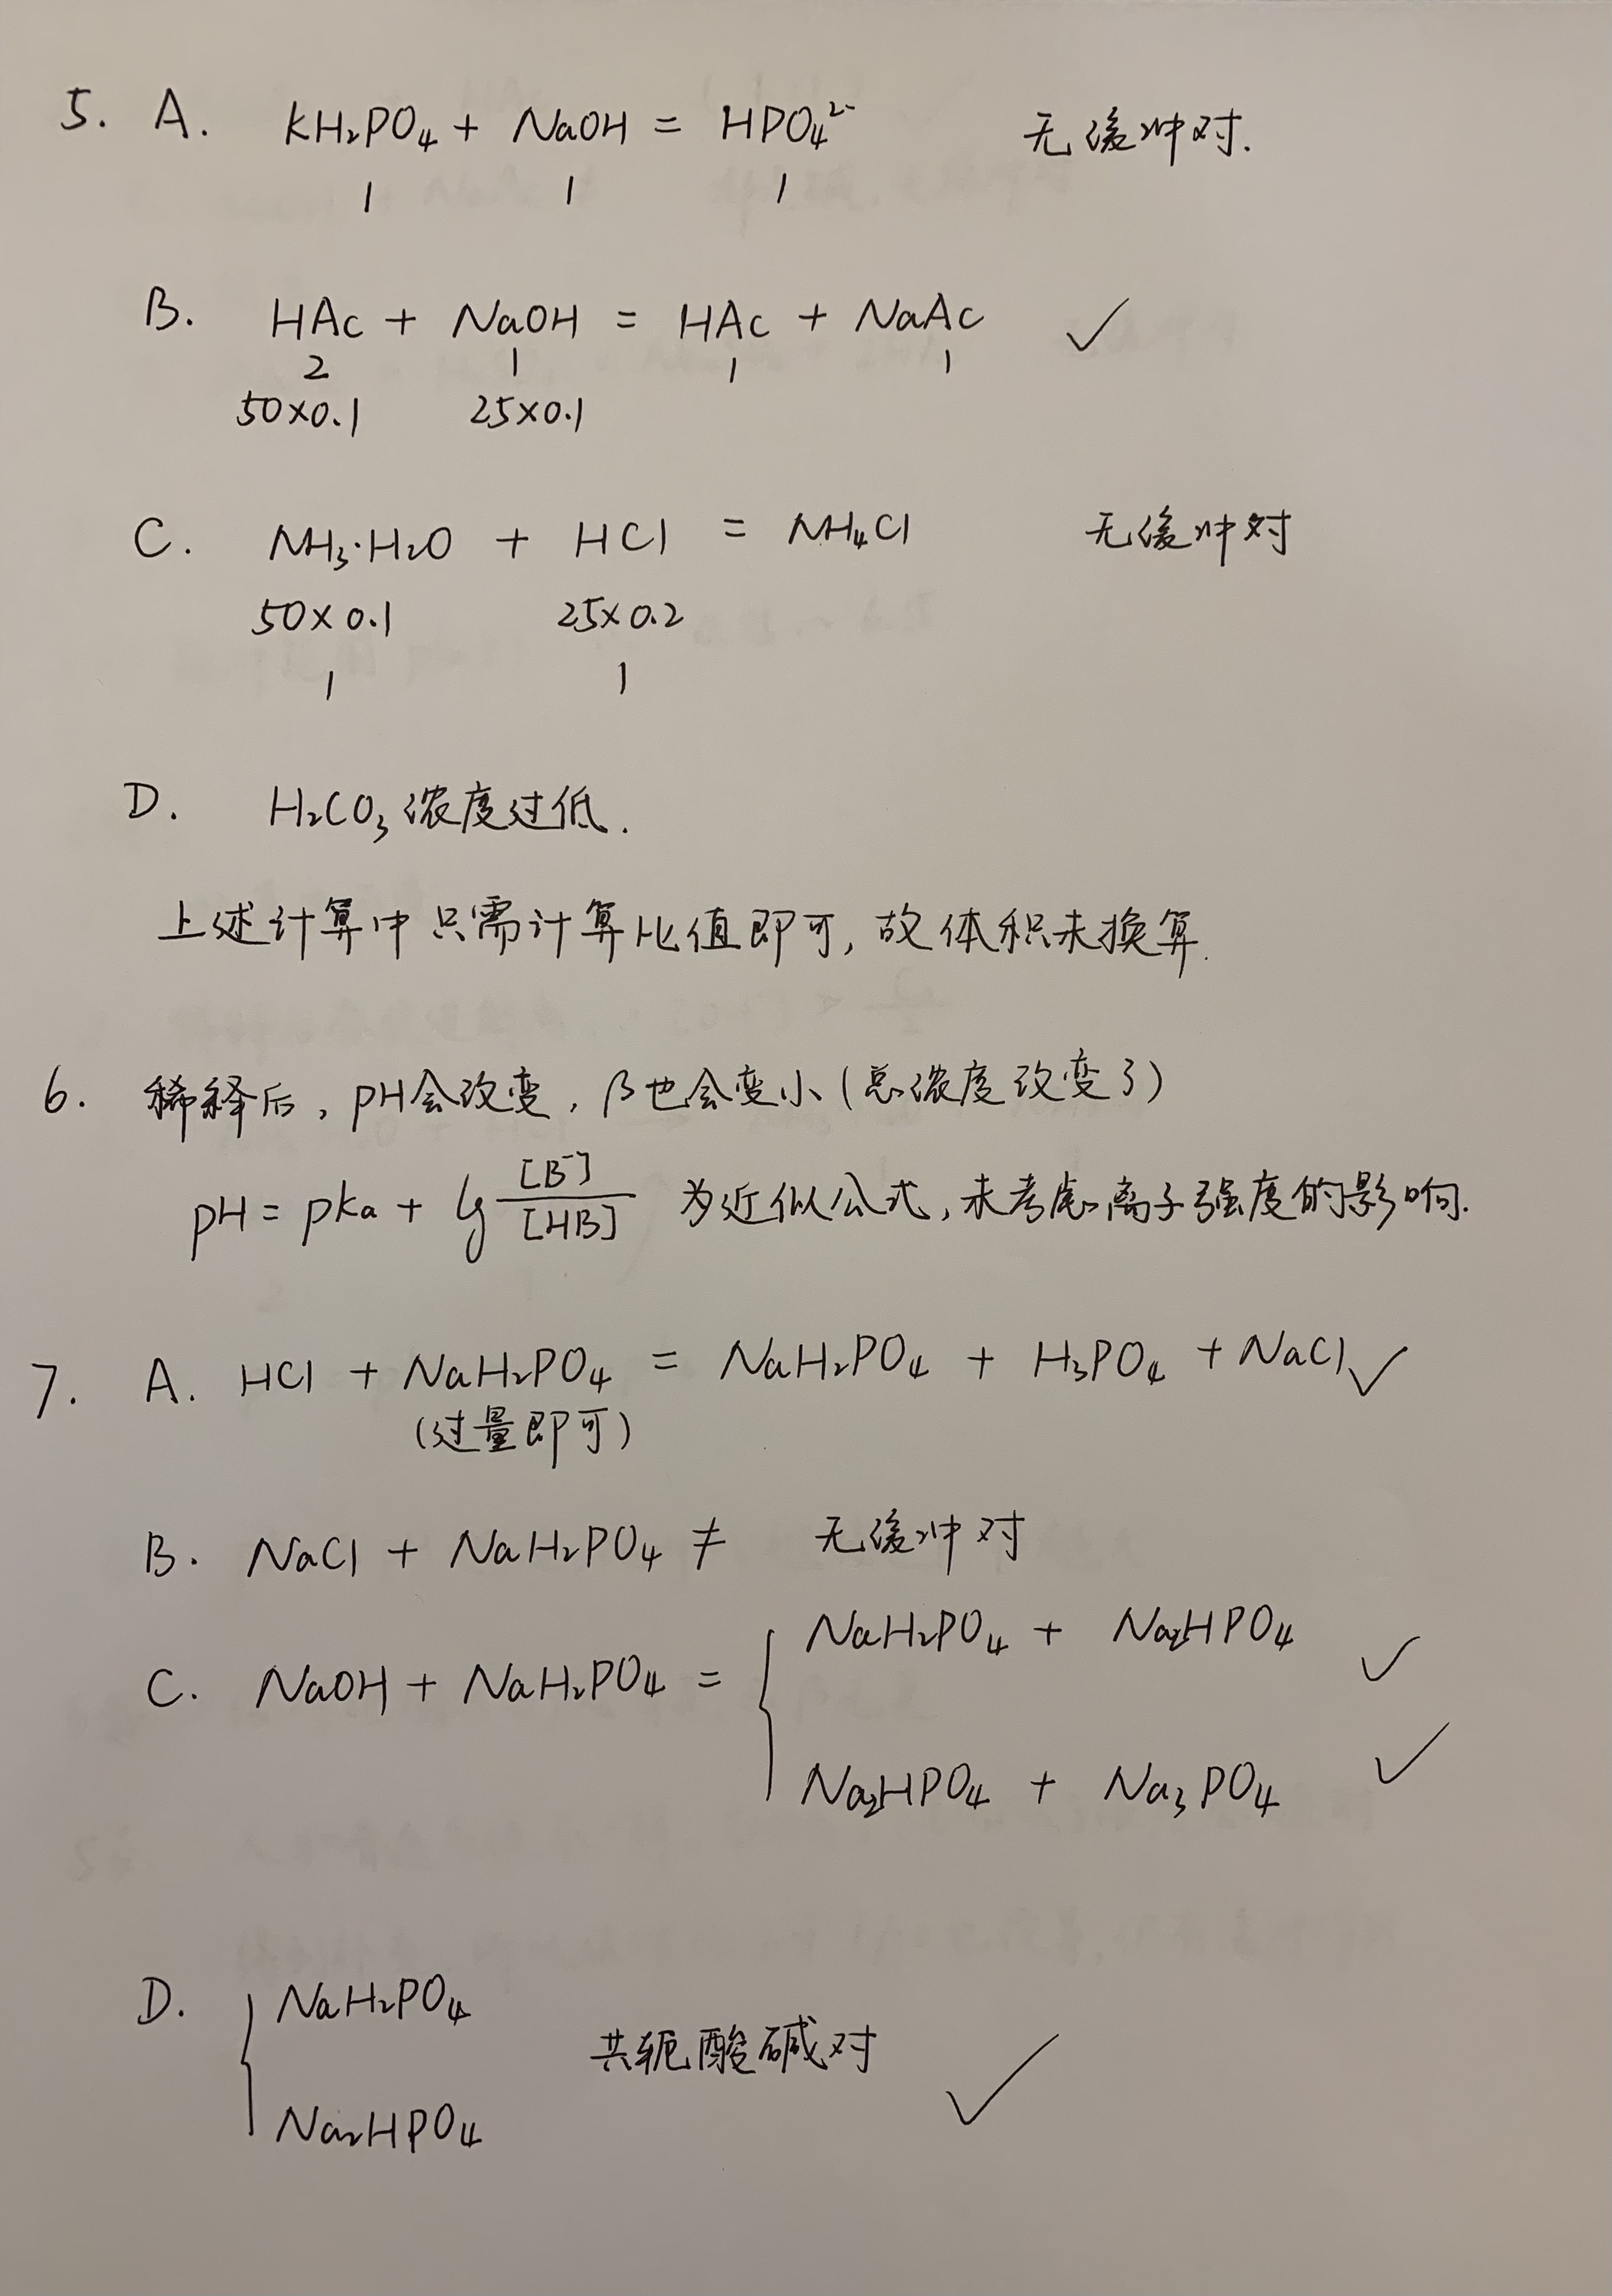 5. A. KH₂PO₄ + NaOH = HPO₄²⁻ 无缓冲对.
1 1 1
B. HAc + NaOH = HAc + NaAc ✓
2 1 1 1
50×0.1 25×0.1
C. NH₃·H₂O + HCl = NH₄Cl 无缓冲对
50×0.1 25×0.2
1 1
D. H₂CO₃浓度过低.
上述计算中只需计算比值即可,故体积未换算.
6. 稀释后,pH会改变,β也会变小(总浓度改变了)
pH = pka + lg [B⁻]/[HB] 为近似公式,未考虑离子强度的影响.
7. A. HCl + NaH₂PO₄ = NaH₂PO₄ + H₃PO₄ + NaCl ✓
(过量即可)
B. NaCl + NaH₂PO₄ ≠ 无缓冲对
C. NaOH + NaH₂PO₄ = { NaH₂PO₄ + Na₂HPO₄ ✓
Na₂HPO₄ + Na₃PO₄ ✓
D. { NaH₂PO₄
共轭酸碱对 ✓
Na₂HPO₄